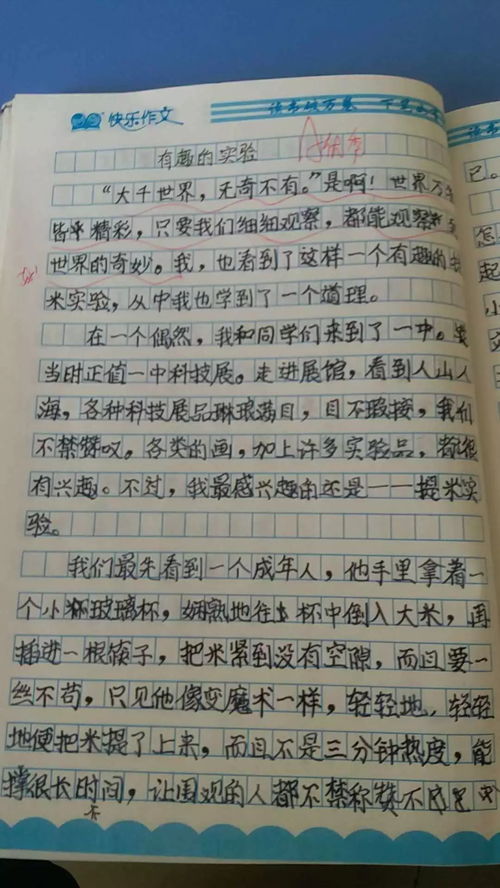 快乐作文
读书破万卷 下笔
有趣的实验
"大千世界，无奇不有。"是啊！世界万
皆精彩，只要我们细细观察，都能观察到
世界的奇妙。我，也看到了这样一个有趣的
米实验，从中我也学到了一个道理。
在一个偶然，我和同学们来到了一中。
当时正值一中科技展。走进展馆，看到人山人
海，各种科技展品琳琅满目，目不暇接，我们
不禁赞叹。各类的画，加上许多实验品，都很
有兴趣。不过，我最感兴趣的还是——提米实
验。
我们最先看到一个成年人，他手里拿着一
个小杯玻璃杯，娴熟地往杯中倒入大米，再
插进一根筷子，把米紧到没有空隙，而且要一
丝不苟，只见他像变魔术一样，轻轻地，轻轻
地便把米提了上来，而且不是三分钟热度，能
撑很长时间，让围观的人都不禁称赞不
已。
怎
起
小